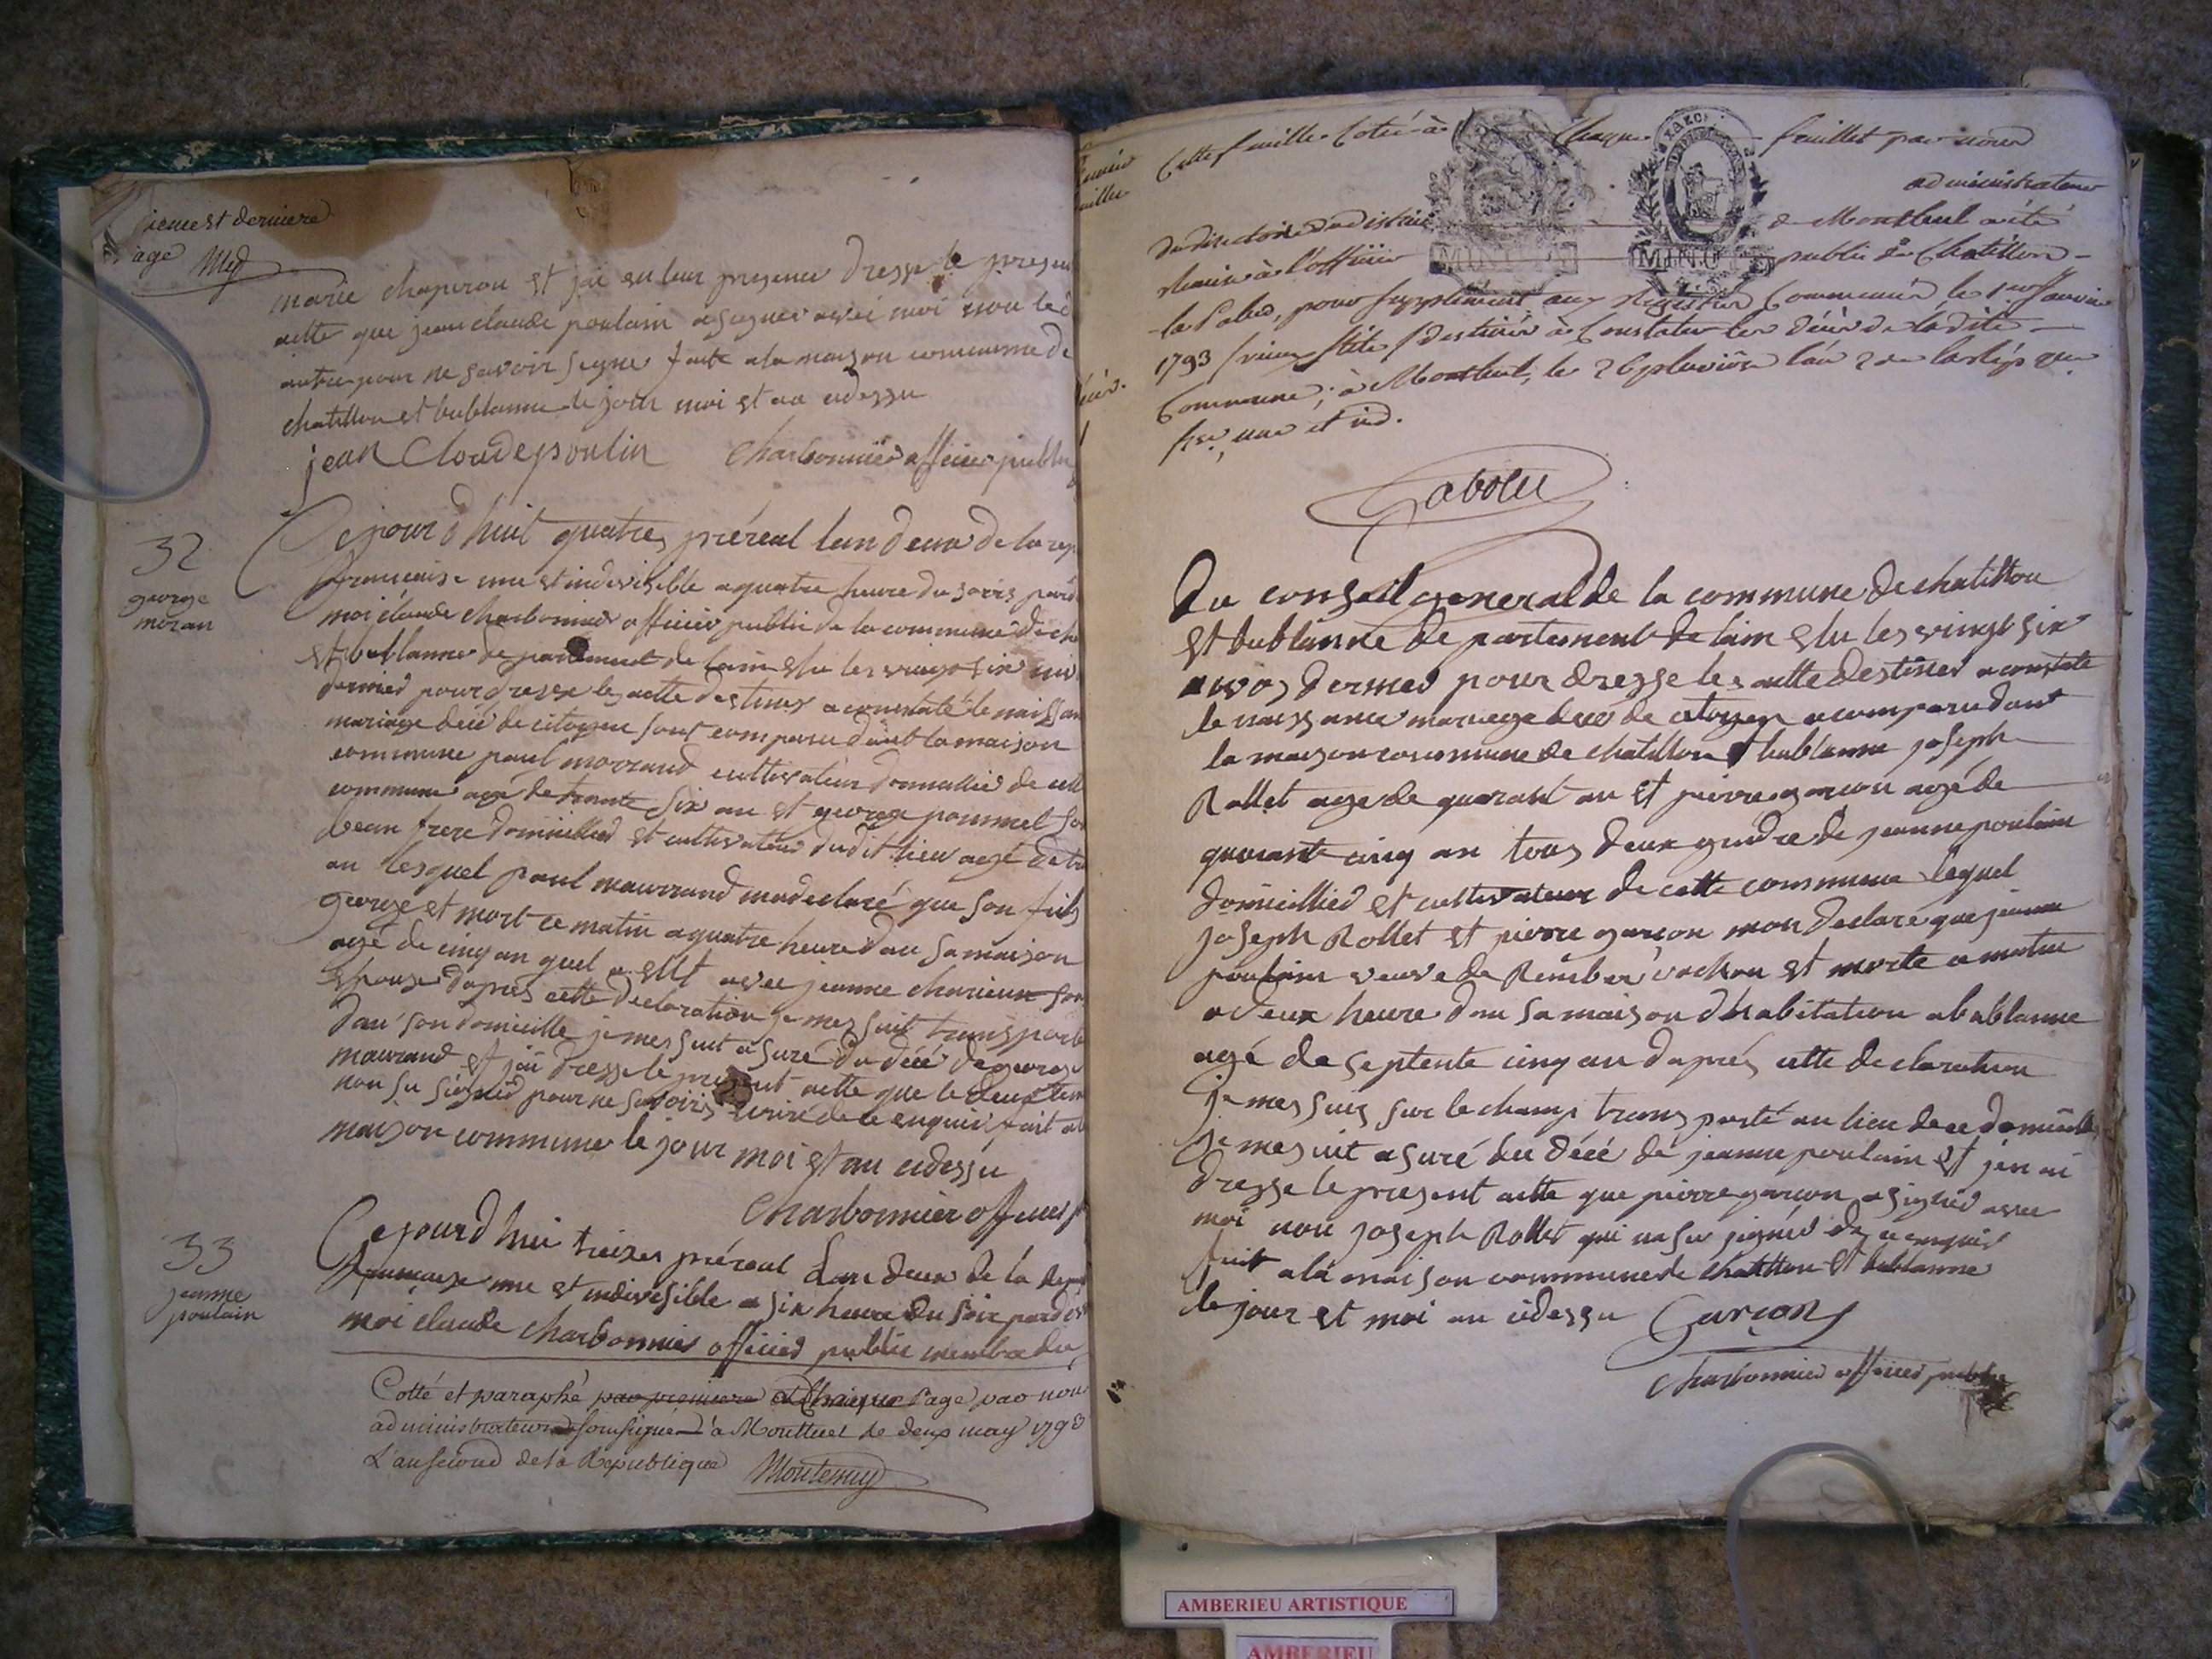 derniere
age
marie chaperon et jai en leur presence dresse le presen
actte que jean claude poulain a signer avec moi non le
autre pour ne savoir signe fait a la maison commune de
chatillon et bublanne le jour moi et an cidessu
jean Cloude poulin Charbonnier officier public
32
george
moran
Ce jour d huit quatres préreal lan deux de la rep
francaise une et indivisible a quatre heure du soir pard
moi claude charbonnier officier public de la commune de cha
et bublanne de partement de lain elu les vingt six niv
dernier pour dresse les actte destiner a constaté le naissan
mariage décé de citoyen sont comparu dant la maison
commune paul morrand cultivateur domicillié de cette
commune agé de trante six an et george pommel son
beau frere domicillied et cultivateur dudit lieu agé de tr
an lesquel paul maurrand ma declaré que son fils
george et mort ce matin a quatre heure dan sa maison
agé de cinq an quel a eut avec jeanne charieux son
epouse daprès cette declaration je mes suit transporte
dan son domicille je mes suit asuré du décé de george
maurand et jai dresse le present actte que le deux tem
non su signed pour ne savoir écrire de ce enquis fait a la
maison commune le jour moi et an cidessu
Charbonnier officier p
33
jeanne
poulain
Ce jourd hui treizes préreal Lan deux de la Repu
francaise une et indivesible a six heure du soir pardev
moi claude charbonnier officied public membre du
Cotté et paraphé par premiere et Chaique Page par nou
administrateur soussigné à Montluel le deux may 1793
L'an second de la Republique Montessuy
Cette feuille Cotée à Chaque feuillet par nous
administrateur
du directoire du district de Montluel a été
remise à l'officier public de Chatillon
MINUTE MINUTE
la Palud, pour supplement aux registres Commencés le 1er Janvier
1793 destinés à Constater les décès de ladite
Commune; à Montluel, le 26 pluviôse l'an 2 de la Rép que
fse, une et ind.
Du conseil general de la commune de chatillon
et bublanne de partement de lain elu les vingt six
nivos dernier pour dresse les actte destiner a constate
le naissance mariege decé de citoyen a comparu dant
la maison commune de chatillon et bublanne joseph
Rollet age de quarant an et pierre garcon agé de
quarante cinq an tous deux gendre de jeanne poulain
domicillied et cultivateur de cette commune lequel
joseph Rollet et pierre garcon mon declare que jeanne
poulain veuve de Rember cochon et morte ce matin
a deux heure dan sa maison dhabitation a bublanne
agé de septente cinq an daprés cette declaration
je mes suis sur le champ trans porté au lieu de ce domicille
je mesuit asuré du décé de jeanne poulain et jen ai
dresse le present actte que pierre garcon a signed avec
moi non joseph Rollet qui na su signer de ce enquis
fait a la maison commune de chatillon et bublanne
le jour et moi an cidessu Garcon
Charbonnier officier public
AMBERIEU ARTISTIQUE
AMBERIEU